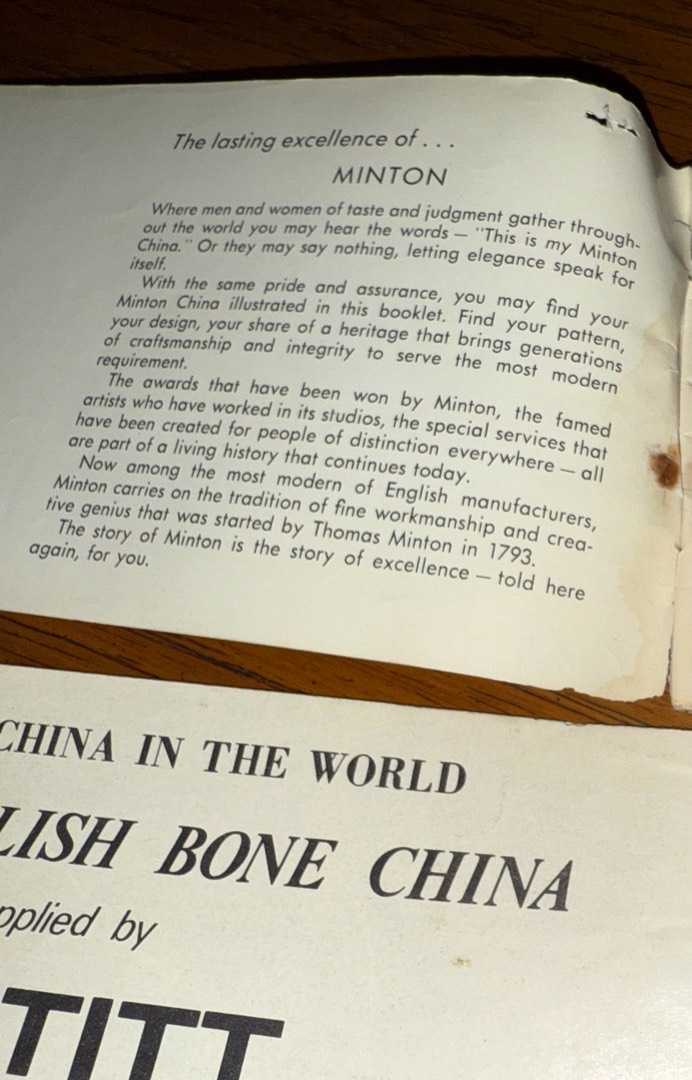 The lasting excellence of . . .
MINTON
Where men and women of taste and judgment gather through-
out the world you may hear the words — "This is my Minton
China." Or they may say nothing, letting elegance speak for
itself.
With the same pride and assurance, you may find your
Minton China illustrated in this booklet. Find your pattern,
your design, your share of a heritage that brings generations
of craftsmanship and integrity to serve the most modern
requirement.
The awards that have been won by Minton, the famed
artists who have worked in its studios, the special services that
have been created for people of distinction everywhere — all
are part of a living history that continues today.
Now among the most modern of English manufacturers,
Minton carries on the tradition of fine workmanship and crea-
tive genius that was started by Thomas Minton in 1793.
The story of Minton is the story of excellence — told here
again, for you.
CHINA IN THE WORLD
LISH BONE CHINA
pplied by
TITT